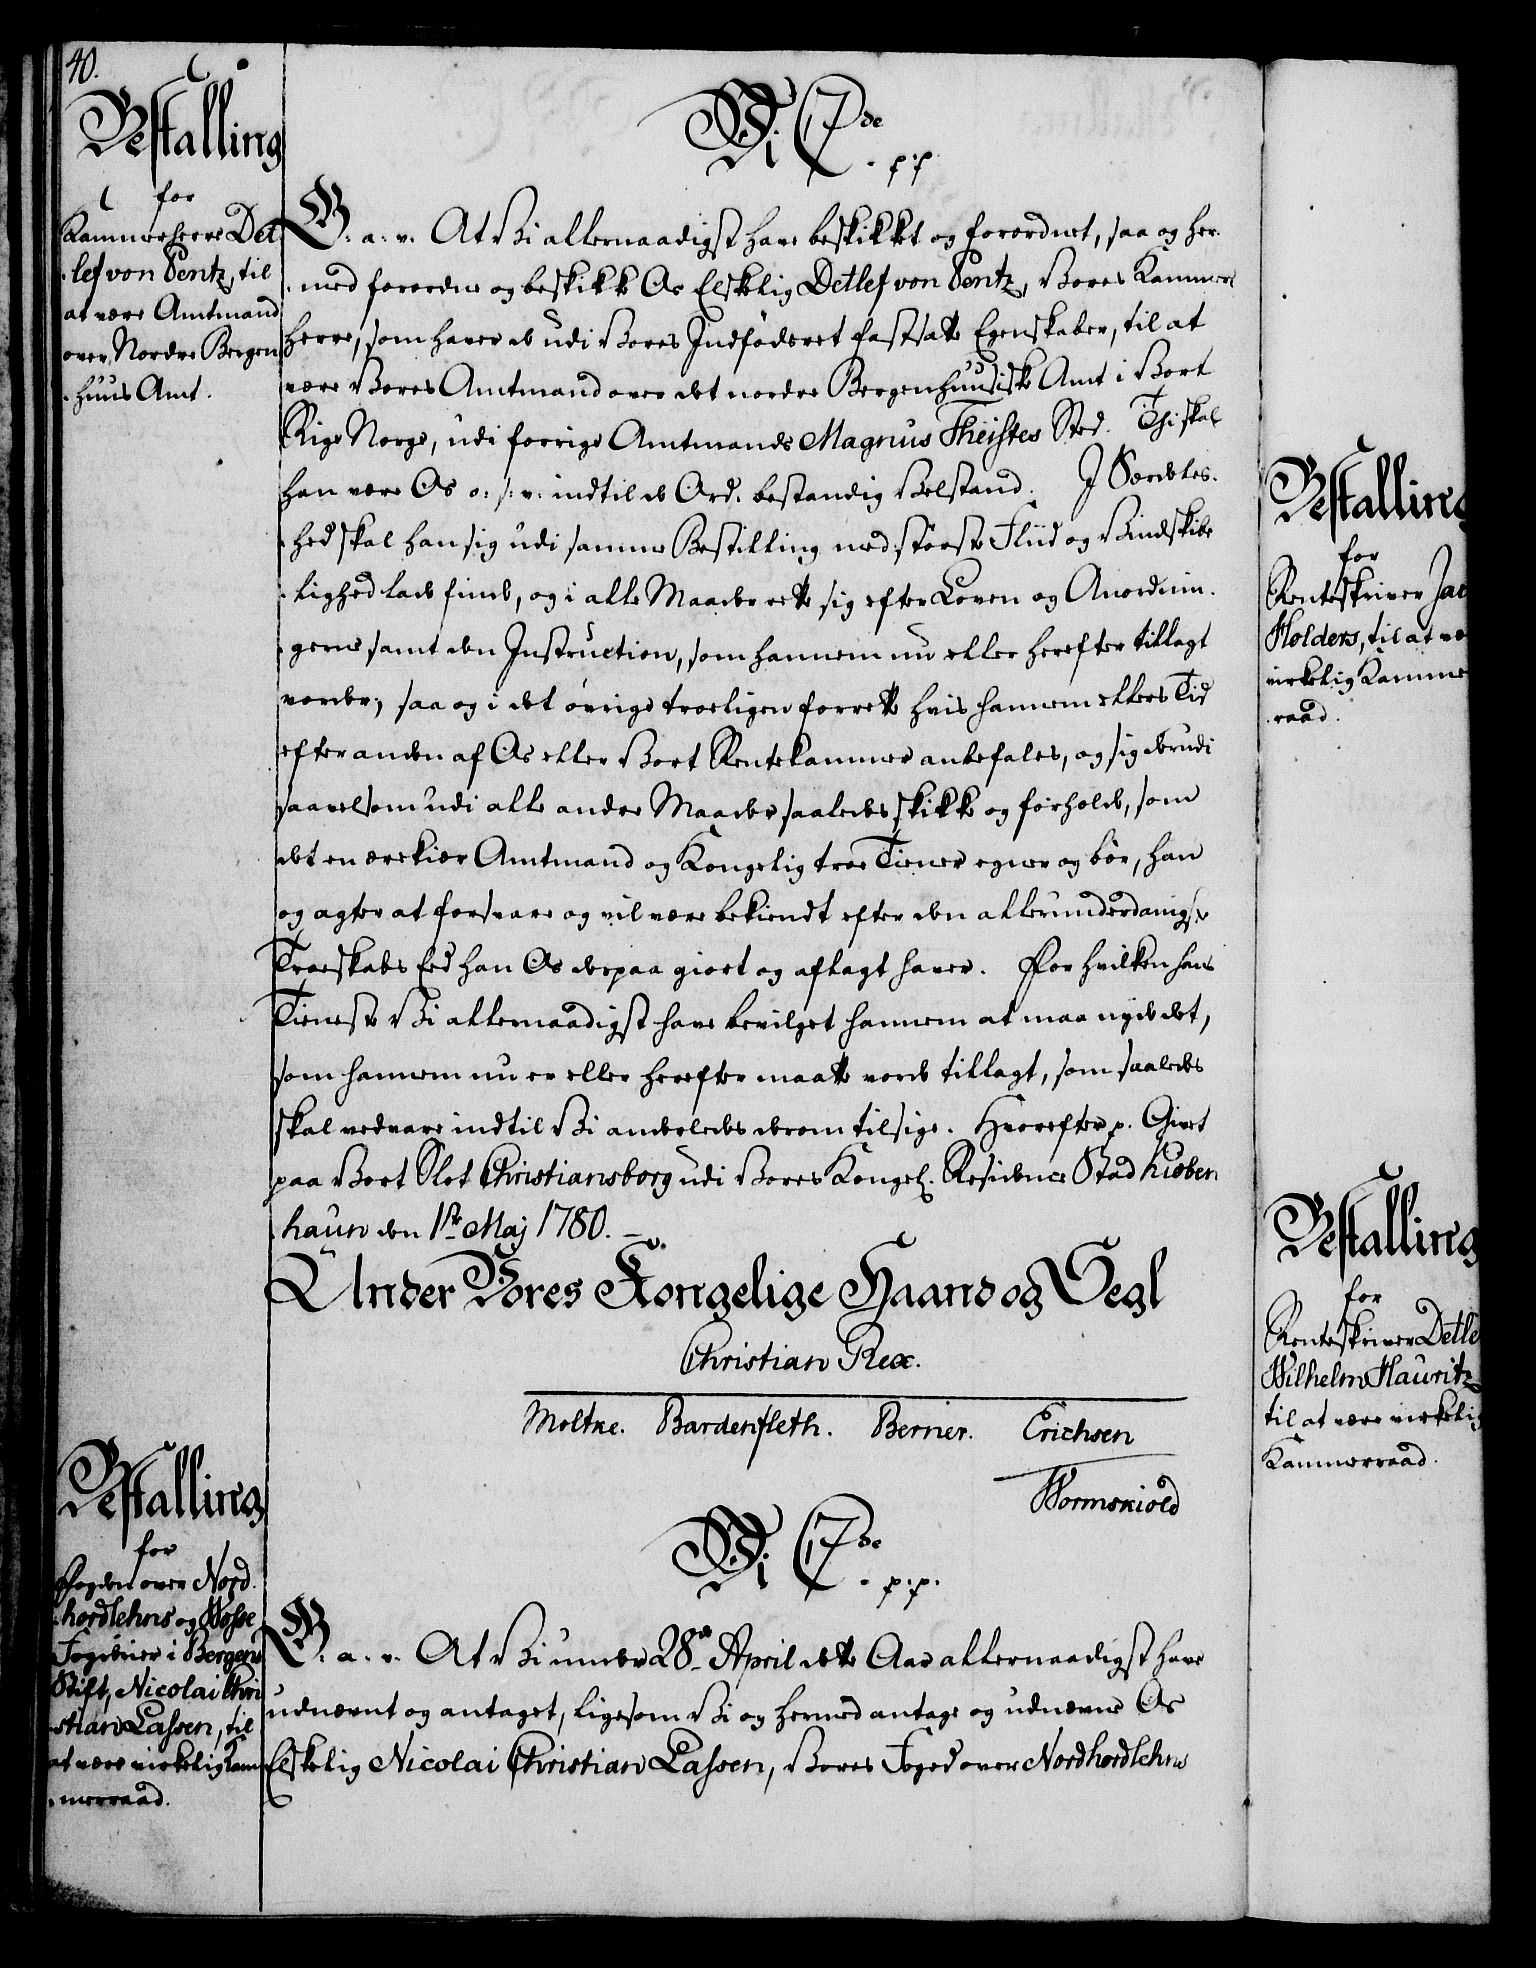 40.
Bestalling
for
Kammerherre Det
lef von Pentz, til
at være Amtmand
over Nordre Bergen
huus Amt.
Vi C 7de
. p.p.
G. a. v. At Vi allernaadigst have beskikket og forordnet, saa og her
med forordne og beskikke Os Elskelig Detlef von Pentz, Vores Kammer
herre, som haver de udi Vores Indfødsret fastsatte Egenskaber, til at
være Vores Amtmand over det nordre Bergenhuusiske Amt i Vort
Rige Norge, udi forrige Amtmands Magnus Theistes Sted. Thi skal
han være Os o: s: v: indtil de Ord: bestandig Velstand. I Særdeles
hed skal han sig udi samme Bestilling med største Fliid og Vindskibe
lighed lade finde, og i alle Maader rette sig efter Loven og Anordnin
gerne samt den Instruction, som hannem nu eller herefter tillagt
vorder; saa og i det øvrige troeligen forrette hvis hannem ellers Tid
efter anden af Os eller Vort Rentekammer anbefales, og sig derudi
saavelsom udi alle andre Maader saaledes skikke og forholde, som
det en ærekiær Amtmand og Kongelig troe Tiener egner og bør, han
og agter at forsvare og vil være bekiendt efter den allerunderdanigste
Troeskabs Eed han Os derpaa giort og aflagt haver. For hvilken hans
Tieneste Vi allernaadigst have bevilget hannem at maa nyde det,
som hannem nu er eller herefter maatte vorde tillagt, som saaledes
skal vedvare indtil Vi anderledes derom tilsige. Hvorefter p. Givet
paa Vort Slot Christiansborg udi Vores Kongel. Residence Stad Kiøben
haun den 1ste Maj 1780.
Under Vores Kongelige Haand og Segl
Christian Rex.
Moltke. Bardenfleth. Berner. Erichsen
Wormskiold
Bestalling
for
Fogden over Nord
hordlehns og Wosse
Fogderier i Bergens
Stift, Nicolai Chri
stian Lassen, til
at være virkelig Kam
merraad.
Vi C 7de
. p.p.
G. a. v. At Vi under 28de April dette Aar allernaadigst have
udnævnt og antaget, ligesom Vi og hermed antage og udnævne Os
Elskelig Nicolai Christian Lassen, Vores Foged over Nordhordlehns
Bestalling
for
Renteskriver Jac
Holders, til at væ
virkelig Kamme
raad.
Bestalling
for
Renteskriver Detle
Wilhelm Hauritz
til at være virkelig
Kammerraad.